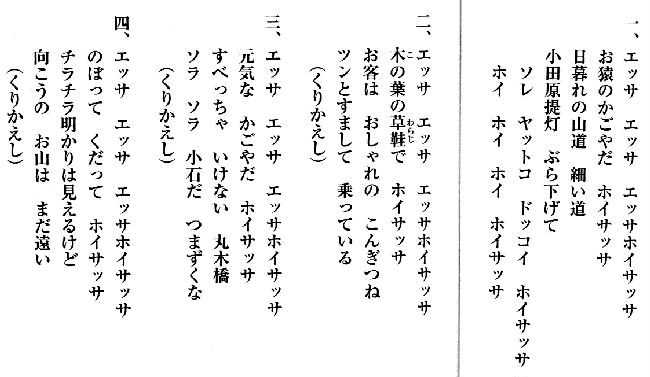 一、エッサ エッサ エッサホイサッサ
お猿のかごやだ ホイサッサ
日暮れの山道 細い道
小田原提灯 ぶら下げて
ソレ ヤットコ ドッコイ ホイサッサ
ホイ ホイ ホイ ホイサッサ
二、エッサ エッサ エッサホイサッサ
木の葉の草鞋で ホイサッサ
お客は おしゃれの こんぎつね
ツンとすまして 乗っている
（くりかえし）
三、エッサ エッサ エッサホイサッサ
元気な かごやだ ホイサッサ
すべっちゃ いけない 丸木橋
ソラ ソラ 小石だ つまずくな
（くりかえし）
四、エッサ エッサ エッサホイサッサ
のぼって くだって ホイサッサ
チラチラ明かりは見えるけど
向こうの お山は まだ遠い
（くりかえし）